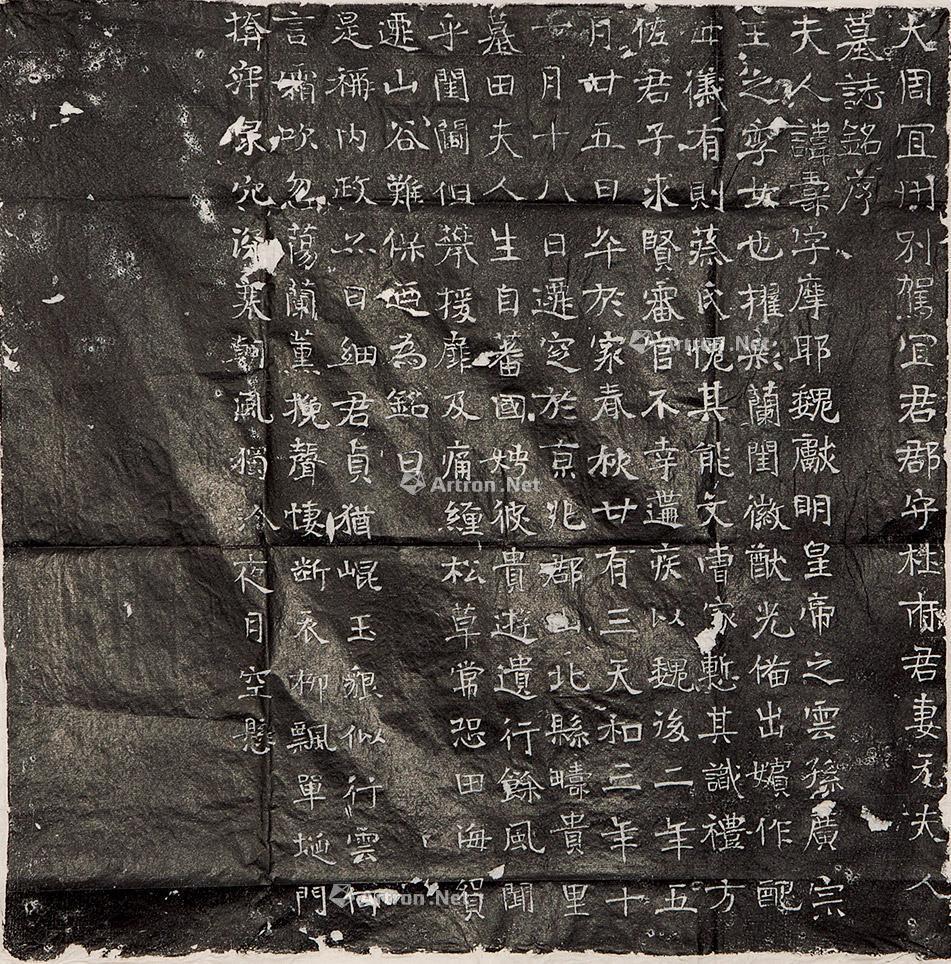 大周宜州別駕宜君郡守杜府君妻元夫人
墓誌銘序
夫人諱壽字摩耶魏獻明皇帝之雲孫廣宗
王之季女也擢彩蘭閨徽猷光俻出嬪作配
儀有則蔡氏愧其能文曹家慙其識禮方
佐君子求賢審官不幸遘疾以魏後二年五
月廿五日卒於家春秋廿有三天和三年十
一月十八日遷窆於京兆郡山北縣疇貴里
墓田夫人生自蕃國娉彼貴遊遺行餘風聞
乎閨閫但攀援靡及痛纏松草常恐田海貿
遷山谷難保廼為銘曰
是稱內政亦曰細君貞猶崐玉貌似行雲
言霜吹忽蕩蘭薰挽聲悽断衣柳飄單埏門
揜穸泉冗深寒朝風獨冷夜月空懸
Artron.Net
Artron.Net
Artron.Net